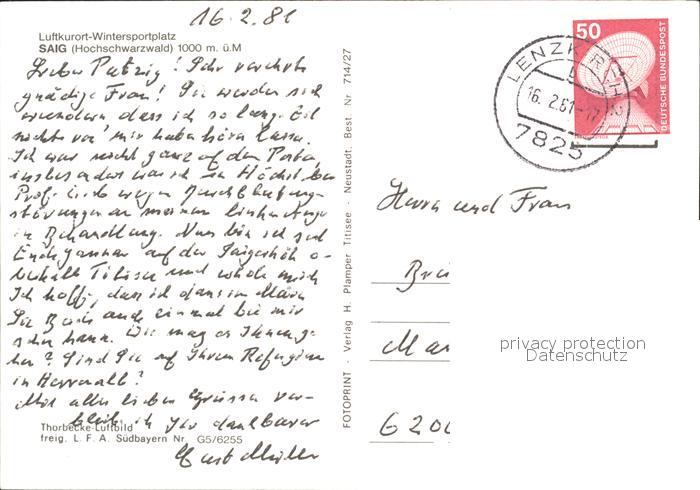 16.2.81
Luftkurort-Wintersportplatz
SAIG (Hochschwarzwald) 1000 m. ü.M
Lieber Putzig! Sehr verehrte
gnädige Frau! Sie werden sich
wundern dass ich so lange Zeit
nichts von mir habe hören lassen.
Ich war nicht ganz auf dem Posten,
insbesondere war ich in Höchst bei
Prof. wegen Durchblutungs-
störungen an meinem linken Auge
in Behandlung. Nun bin ich seit
Ende Januar auf der Saigerhöh o-
berhalb Titisee und erhole mich
Ich hoffe, dass ich dann im März
Sie Beide auch einmal bei mir
sehen kann. Wie mag es Ihnen ge-
hen? Sind Sie auf Ihrem Refugium
in Herrenalb?
Mit allen lieben Grüssen ver-
bleibe ich Ihr dankbarer
Curt Müller
Thorbecke-Luftbild
freig. L. F. A. Südbayern Nr. G5/6255
FOTOPRINT - Verlag H. Plamper Titisee - Neustadt Best. Nr. 714/27
LENZKIRCH
16.2.81-17
7825
50
DEUTSCHE BUNDESPOST
Herrn und Frau
privacy protection
Datenschutz
6200